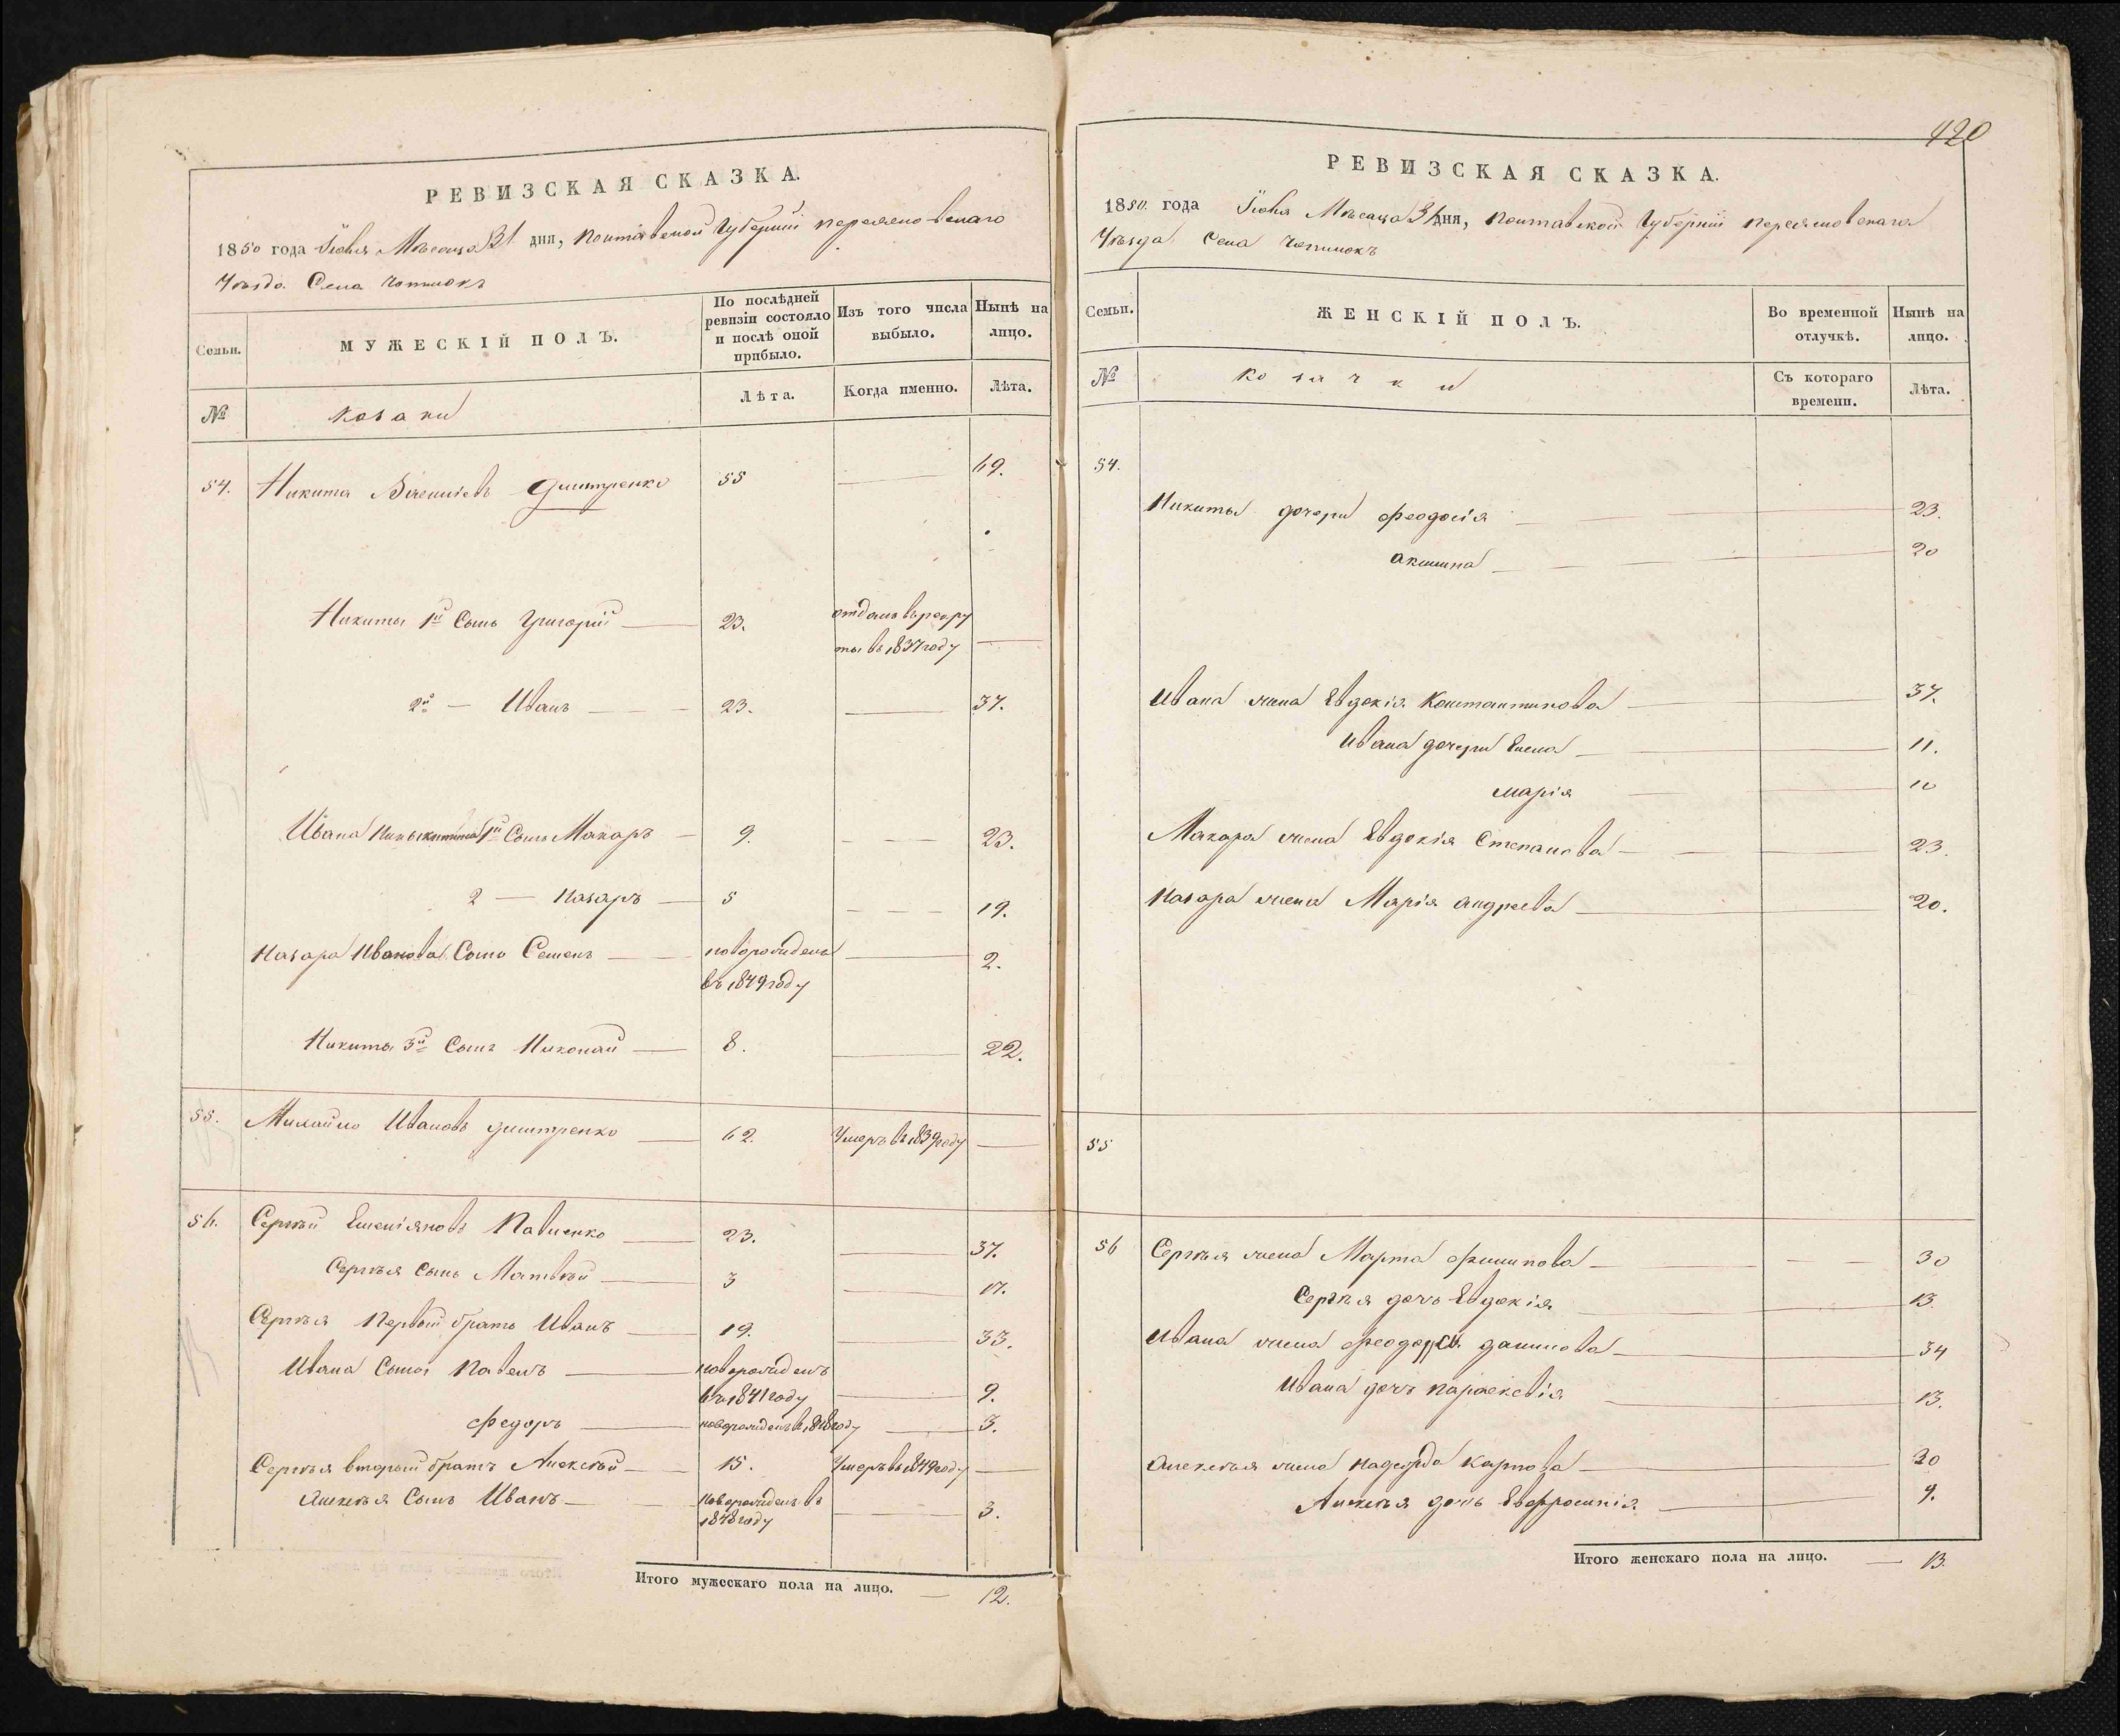 РЕВИЗСКАЯ СКАЗКА.
1850 года Іюля Мѣсяца 31 дня, Полтавской Губерніи Переясловскаго
Уѣзда Села Чопилокъ
Семьи.
МУЖЕСКІЙ ПОЛЪ.
По послѣдней ревизіи состояло и послѣ оной прибыло.
Изъ того числа выбыло.
Нынѣ на лицо.
№
козаки
Лѣта.
Когда именно.
Лѣта.
54. Никита Дмитренко 55 — 69.
Никиты 1й Сынъ Григорій — 23. отданъ в рекру
ты въ 1837 году —
2й — Иванъ — 23. — 37.
Ивана Никитина 1й Сынъ Макаръ — 9. — 23.
2 — Назаръ — 5 — 19.
Назара Иванова Сынъ Семенъ — новорожденъ — 2.
въ 1849 году
Никиты 3й Сынъ Николай — 8. — 22.
55. Михайло Ивановъ Дмитренко — 62. Умеръ въ 1839 году —
56. Сергѣй Емеліяновъ Павленко — 23. — 37.
Сергѣя Сынъ Матвѣй — 3 — 17.
Сергѣя Первый братъ Иванъ — 19. — 33.
Ивана Сыны Павелъ — новорожденъ
въ 1841 году — 9.
Федоръ — новорожденъ въ 1848 году — 3.
Сергѣя вторый братъ Алексѣй — 15. Умеръ въ 1849 году —
Алексѣя Сынъ Иванъ — новорожденъ въ
1848 году — 3.
Итого мужескаго пола на лицо. — 12.
420
РЕВИЗСКАЯ СКАЗКА.
1850. года Іюля Мѣсяца 31 дня, Полтавской Губерніи Переясловскаго
Уѣзда Села Чопилокъ
Семьи.
ЖЕНСКІЙ ПОЛЪ.
Во временной отлучкѣ.
Нынѣ на лицо.
№
козачки
Съ котораго времени.
Лѣта.
54.
Никиты дочери Феодосія — 23.
Акилина — 20
Ивана жена Евдокія Константинова — 37.
Ивана дочери Елена — 11.
Марія — 10
Макара жена Евдокія Степанова — 23.
Назара жена Марія Андреева — 20.
55
56 Сергѣя жена Марта Филипова — 30
Сергѣя дочь Евдокія — 13.
Ивана жена Данилова — 34
Ивана дочь Параскевія — 13.
Алексѣя жена Надежда Карпова — 20
Алексѣя дочь Евфросинія — 9.
Итого женскаго пола на лицо. — 13.